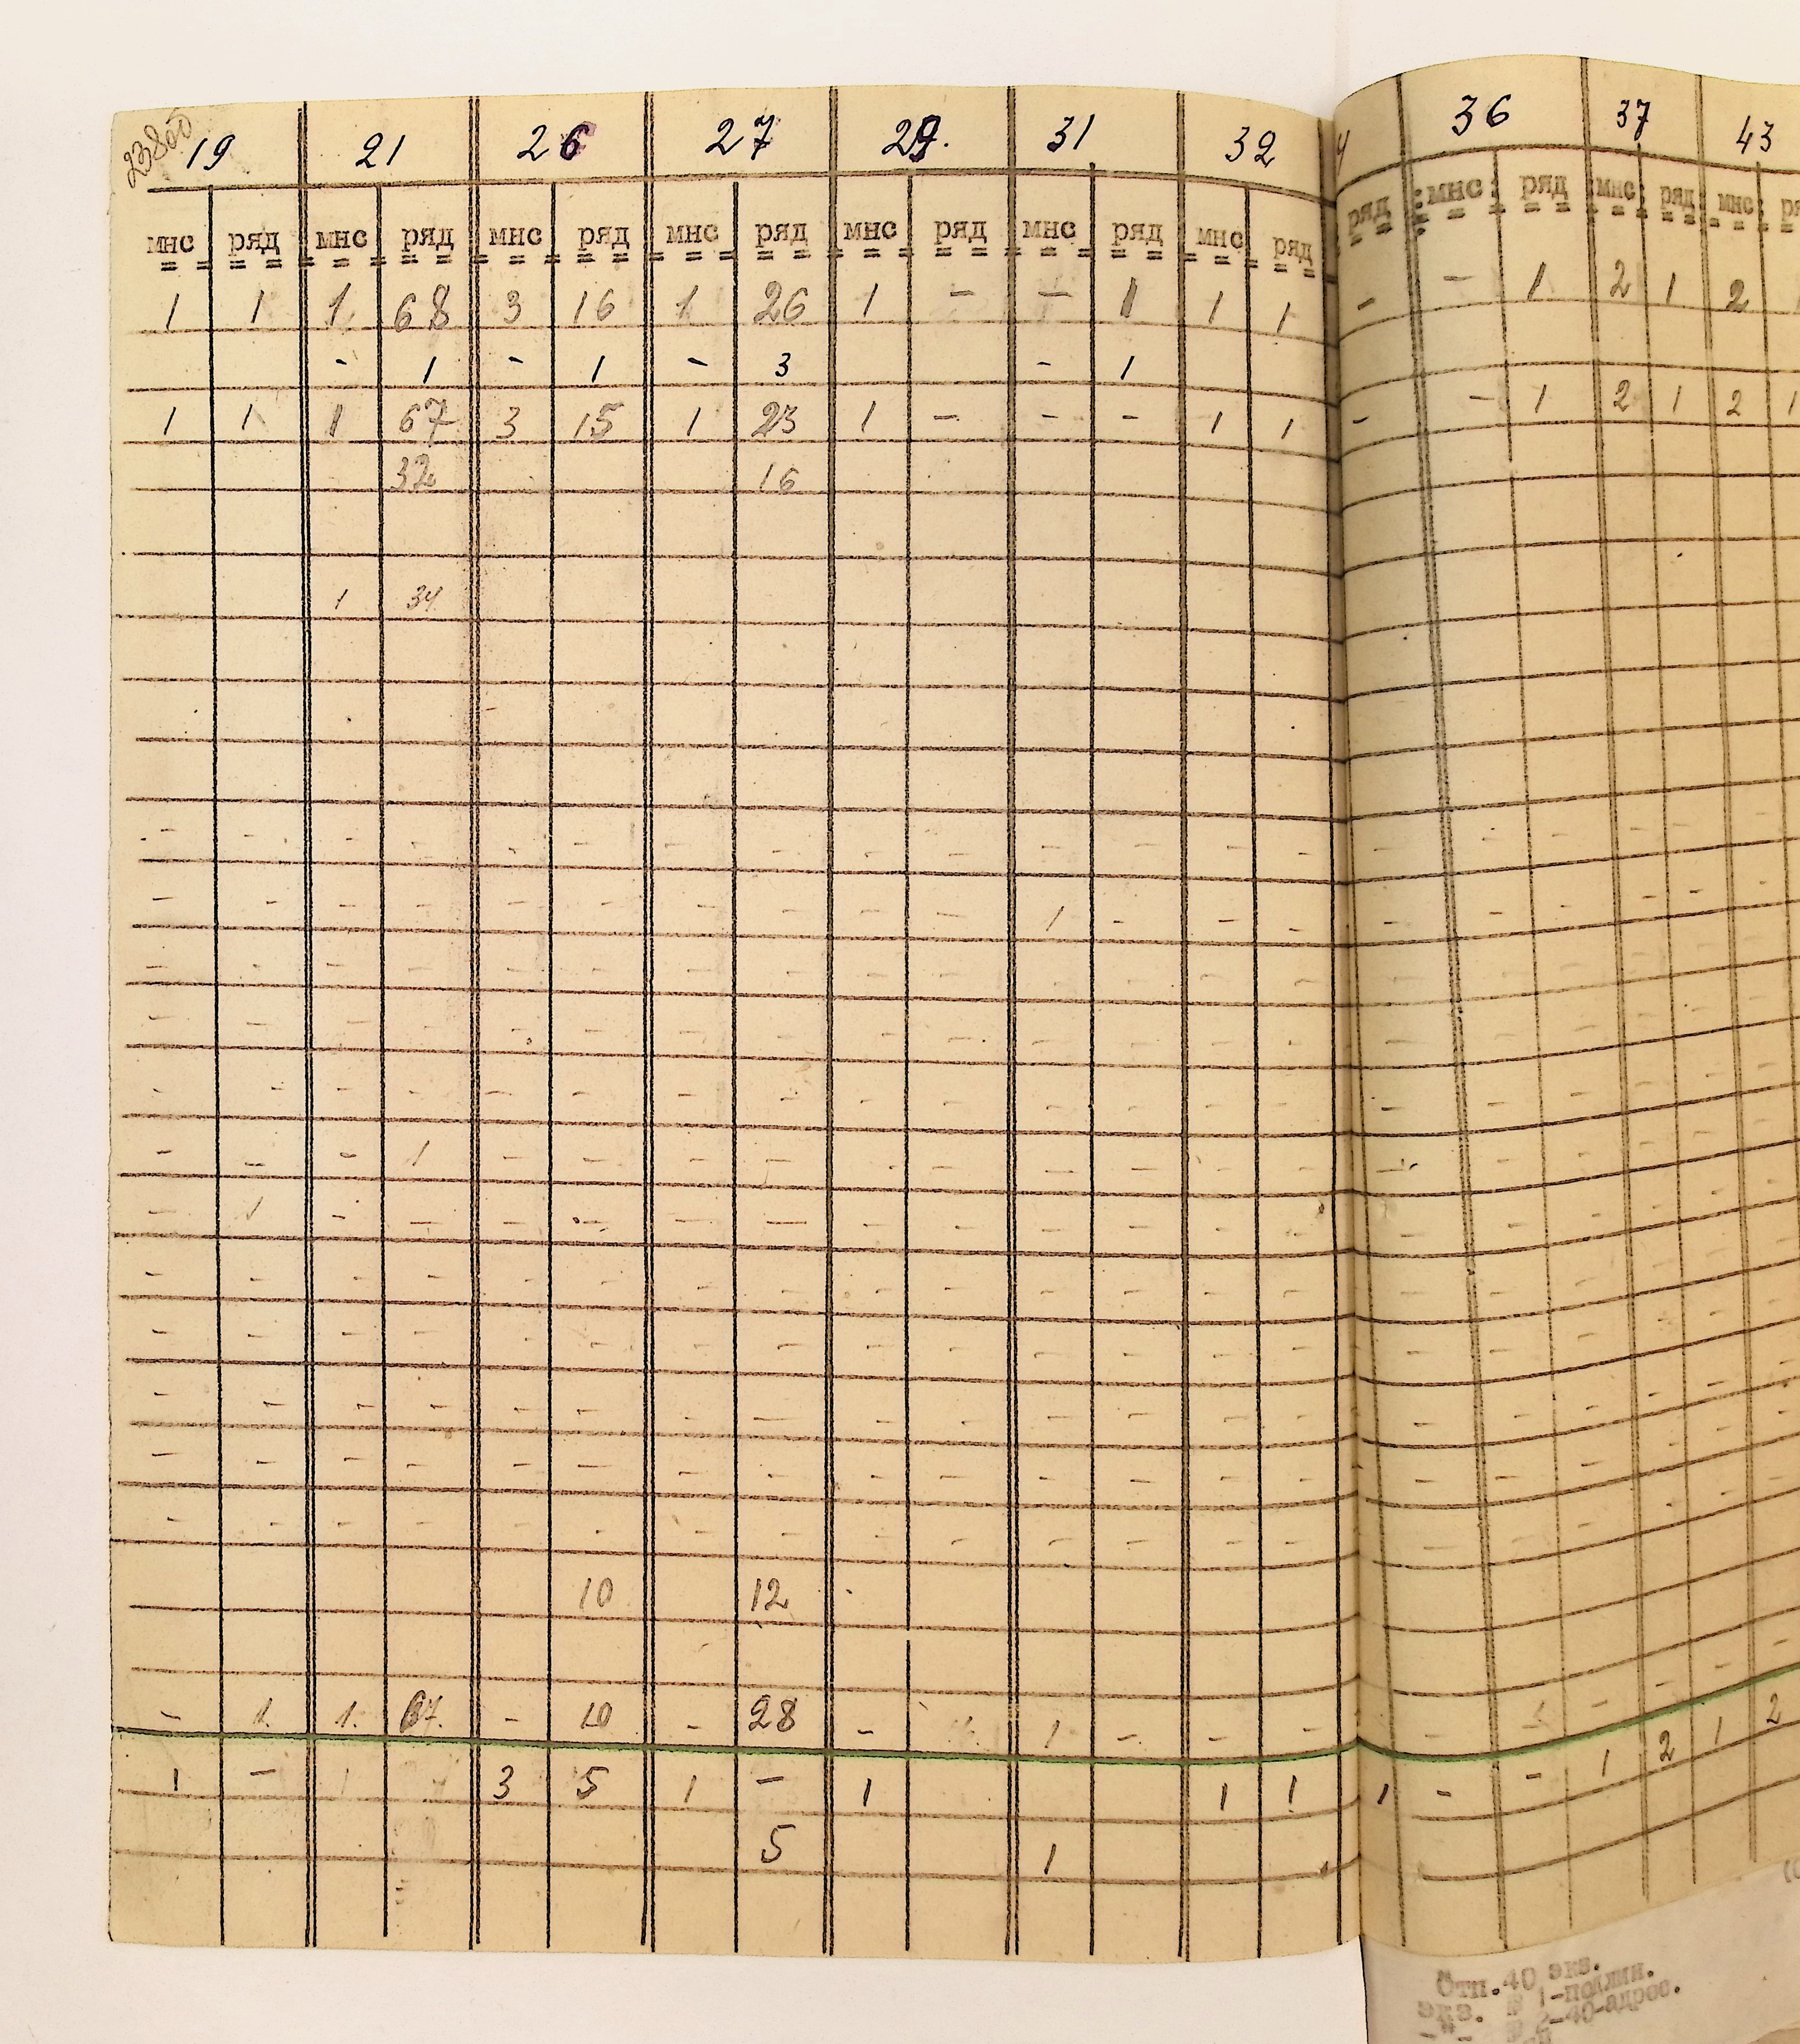 23800
19 21 26 27 29. 31 32 36 37 43
мнс ряд мнс ряд мнс ряд мнс ряд мнс ряд мнс ряд мнс ряд ряд мнс ряд мнс ряд мнс
1 1 1 68 3 16 1 26 1 - - 1 1 1 - - 1 2 1 2
- 1 - 1 - 3 - 1
1 1 1 67 3 15 1 23 1 - - - 1 1 - - 1 2 1 2 1
32 16
1 34
- - - - - - - - - - - - - - - - - - - -
- - - - - - - - - - 1 - - - - - - - - -
- - - - - - - - - - - - - - - - - - - -
- - - - - - - - - - - - - - - - - - - -
- - - - - - - - - - - - - - - - - - - -
- - - 1 - - - - - - - - - - - - - - - -
- 1 - - - - - - - - - - - - - - - - - -
- - - - - - - - - - - - - - - - - - - -
- - - - - - - - - - - - - - - - - - - -
- - - - - - - - - - - - - - - - - - - -
- - - - - - - - - - - - - - - - - - - -
- - - - - - - - - - - - - - - - - - - -
10 12
- 1. 1. 67. - 10 - 28 - 1 - - - - - - - -
1 - 1 3 5 1 - 1 1 1 1 - - 1 2 1 2
5 1
Отп.40 экз.
экз. № 1-подлин.
-"- № 2-40-адрес.